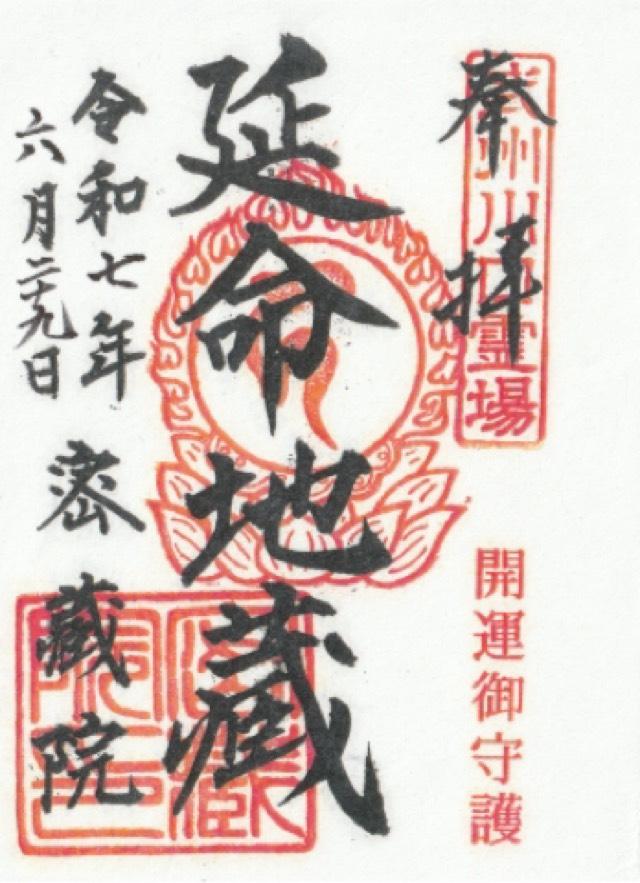 奉拝
武州川口霊場
開運御守護
延命地蔵
令和七年
六月二十九日
密蔵院